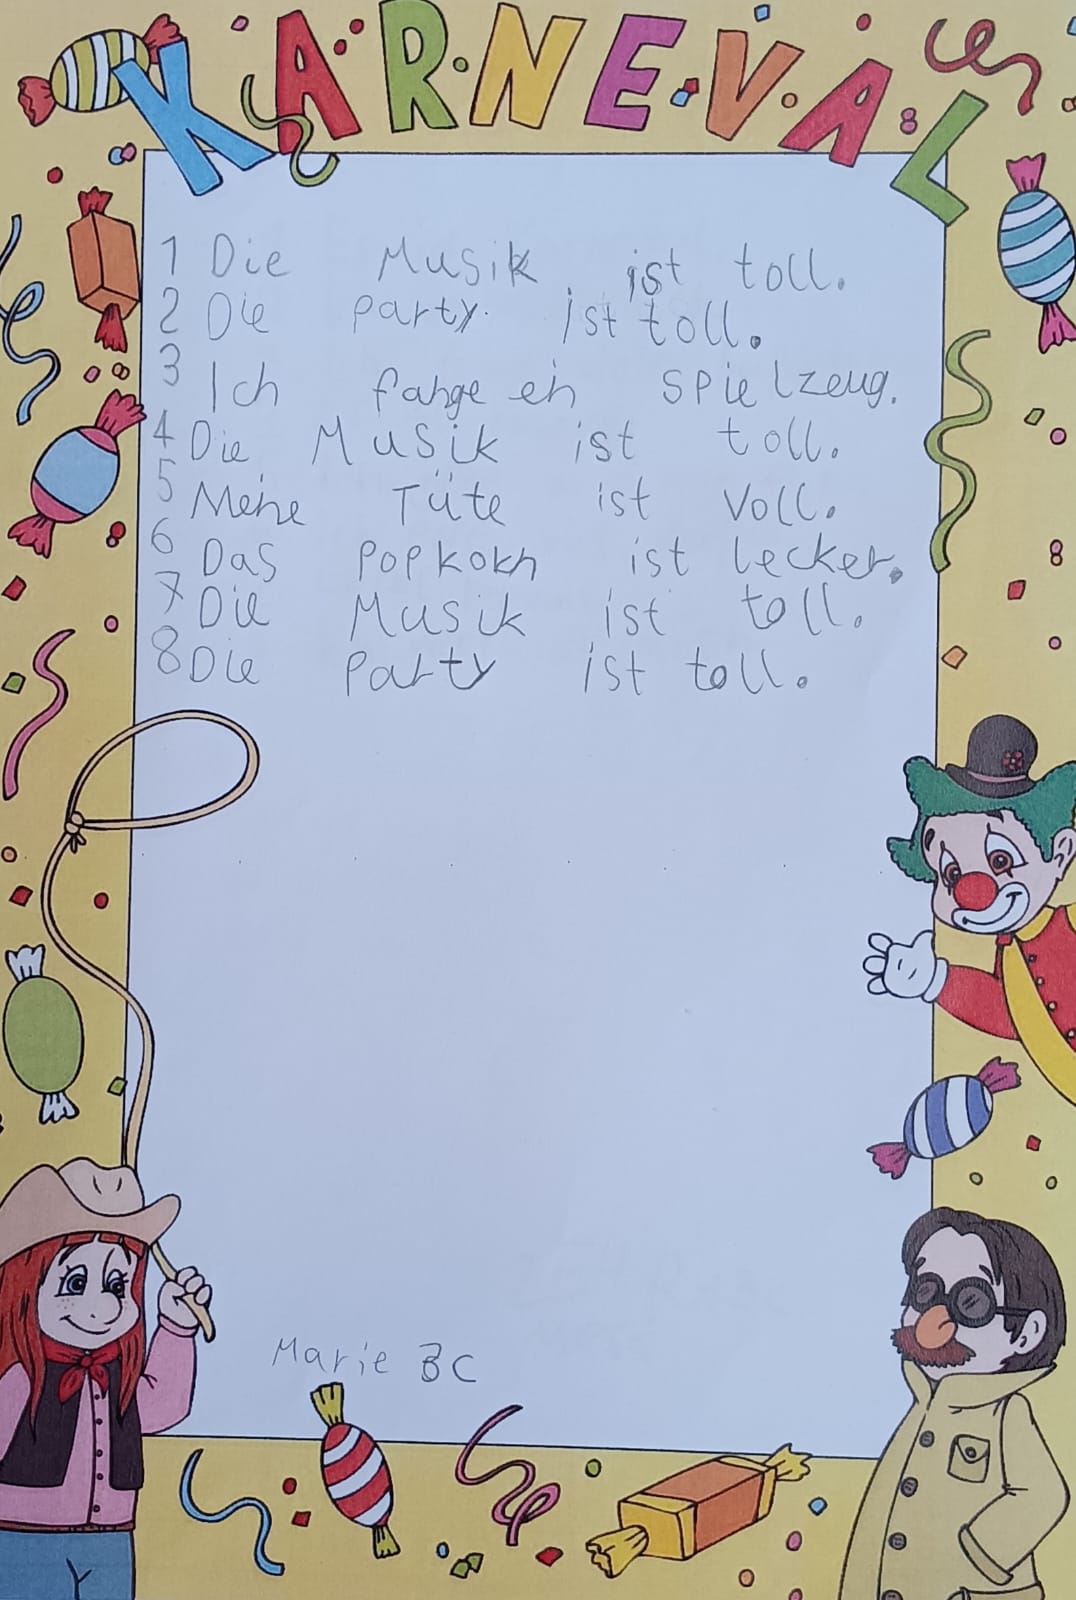 KARNEVAL
1 Die Musik ist toll.
2 Die Party ist toll.
3 Ich fange ein Spielzeug.
4 Die Musik ist toll.
5 Meine Tüte ist voll.
6 Das Popkokn ist lecker.
7 Die Musik ist toll.
8 Die Party ist toll.
Marie 3C